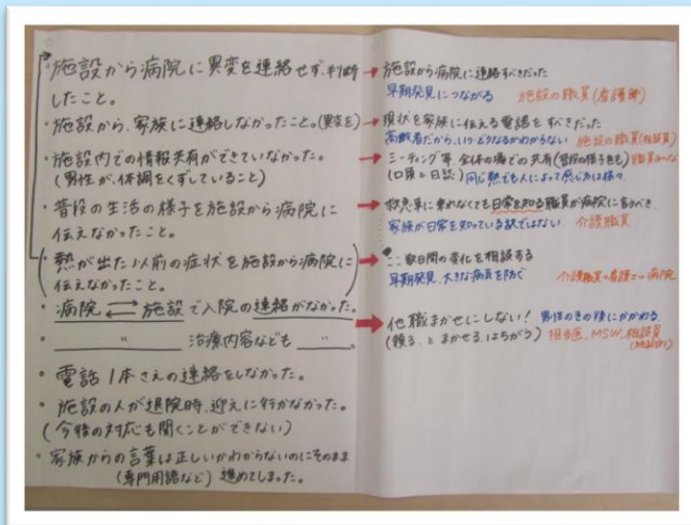 ・施設から病院に異変を連絡せず、判断
したこと。
・施設から、家族に連絡しなかったこと。(異変を)
・施設内での情報共有ができていなかった。
(男性が、体調をくずしていること)
・普段の生活の様子を施設から病院に
伝えなかったこと。
(熱が出た以前の症状を施設から病院に
伝えなかったこと。)
・病院 ⇄ 施設で入院の連絡がなかった。
・ 〃 治療内容なども 〃 。
・電話1本さえの連絡をしなかった。
・施設の人が退院時、迎えに行かなかった。
(今後の対応も聞くことができない)
・家族からの言葉は正しいかわからないのにそのまま
(専門用語など) 進めてしまった。
→施設から病院に連絡すべきだった
早期発見につながる 施設の職員(看護師)
→現状を家族に伝える電話をすべきだった
高齢者だから、いつどうなるかわからない 施設の職員(相談員)
→ミーティング等、全体の場での共有(普段の様子も) 職員みーんな
(口頭と日誌) 同じ熱でも人によって感じ方は様々
→救急車に乗れなくても日常を知る職員が病院に言うべき
家族が日常を知っている訳ではない 介護職員
→ここ数日間の変化を相談する
早期発見、大きな病気を防ぐ 介護職員→看護士→病院
→他職まかせにしない! 男性のその後にかかわる
(頼る、とまかせる、はちがう) 担当医、MSW、相談員